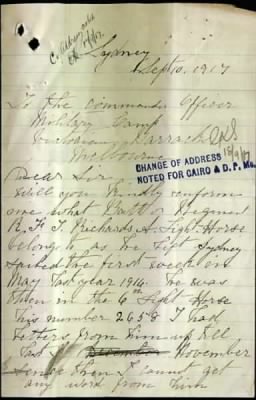 C. Address noted
Sydney
Sept 10. 1917
To the Commander Officer
Military Camp
Barracks
Melbourne
CHANGE OF ADDRESS
NOTED FOR CAIRO & D. P.
Dear Sir
Will you kindly conform
me what Batt or Regiment
R. F. J. Richards A. Light Horse
belongs to as he left Sydney
the first week in
May last year 1916. He was
then in the 6 Light Horse
This number 2658 I had
letters from him up till
last December November
since then I cannot get
any word from him